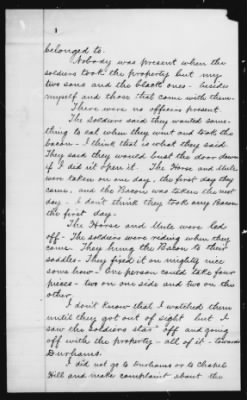 belonged to.
Nobody was present when the
soldiers took the property but my
two sons and the black ones - besides
myself and those that came with them.
There were no officers present.
The soldiers said they wanted some-
thing to eat when they went and took the
bacon - I think that is what they said.
They said they would bust the door down
if I did not open it. The Horse and Mule
were taken on one day, the first day they
came. and the Bacon was taken the next
day - I don't think they took any Bacon
the first day.
The Horse and Mule were led
off - The soldiers were riding when they
come. They hung the Bacon to their
saddles - They fixed it on mighty nice
some how - One person could take four
pieces - two on one side and two on the
other.
I don't know that I watched them
until they got out of sight but I
saw the soldiers start off and going
off with the property - all of it - towards
Durhams.
I did not go to Durhams or to Chapel
Hill and make complaint about the